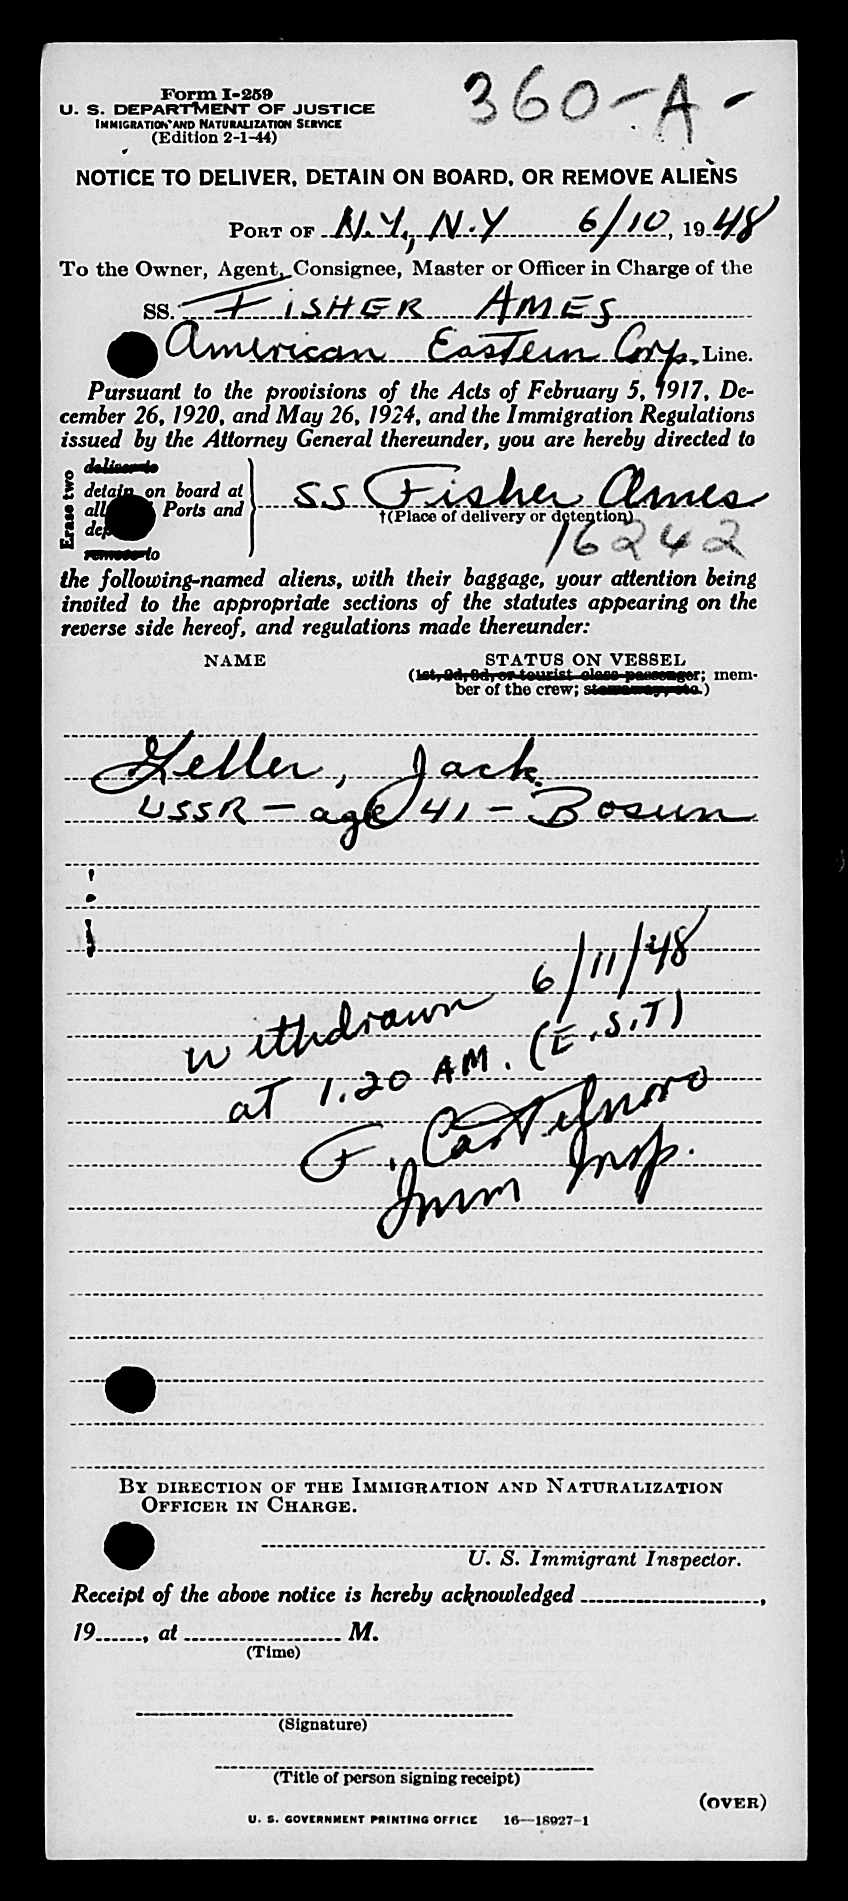 360-A-
Form I-259
U. S. DEPARTMENT OF JUSTICE
IMMIGRATION AND NATURALIZATION SERVICE
(Edition 2-1-44)
NOTICE TO DELIVER, DETAIN ON BOARD, OR REMOVE ALIENS
PORT OF N.Y., N.Y 6/10, 1948
To the Owner, Agent, Consignee, Master or Officer in Charge of the
SS. FISHER AMES
American Eastern Corp. Line.
Pursuant to the provisions of the Acts of February 5, 1917, De-
cember 26, 1920, and May 26, 1924, and the Immigration Regulations
issued by the Attorney General thereunder, you are hereby directed to
Erase two
deliver to
detain on board at
all Ports and
remove to
SS Fisher Ames
†(Place of delivery or detention)
16242
the following-named aliens, with their baggage, your attention being
invited to the appropriate sections of the statutes appearing on the
reverse side hereof, and regulations made thereunder:
NAME STATUS ON VESSEL
(1st, 2d, 3d, or tourist class passenger; mem-
ber of the crew; stowaway, etc.)
Jack
USSR - age 41 - Bosun
withdrawn 6/11/48
at 1.20 AM. (E.S.T)
F.
Imm Insp.
BY DIRECTION OF THE IMMIGRATION AND NATURALIZATION
OFFICER IN CHARGE.
U. S. Immigrant Inspector.
Receipt of the above notice is hereby acknowledged ,
19 , at M.
(Time)
(Signature)
(Title of person signing receipt)
(OVER)
U. S. GOVERNMENT PRINTING OFFICE 16—18927-1